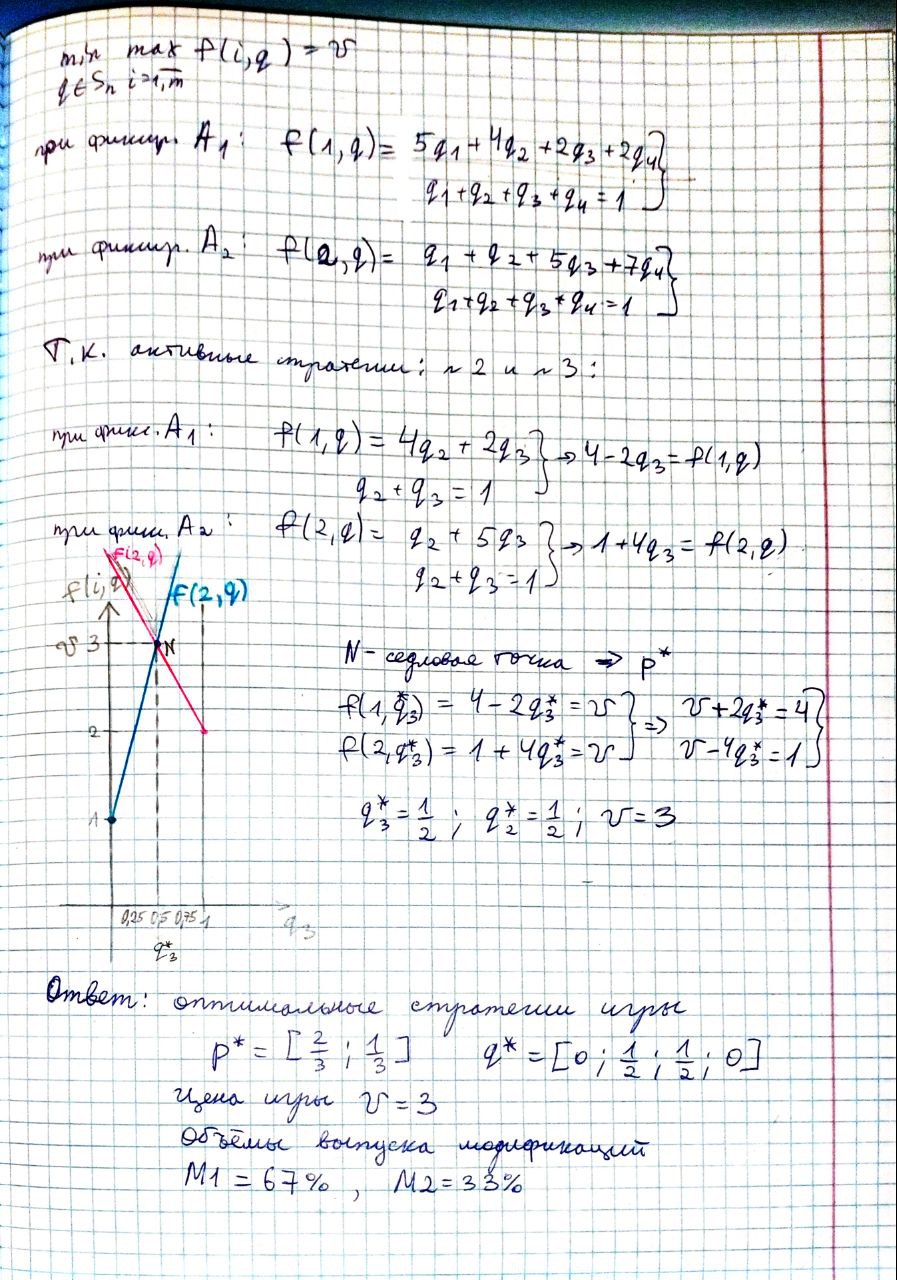 min max f(i,q) = v
q∈Sn i=1,m
при фиксир. A1: f(1,q) = 5q1+4q2+2q3+2q4 }
q1+q2+q3+q4=1
при фиксир. A2: f(2,q) = q1+q2+5q3+7q4 }
q1+q2+q3+q4=1
Т.к. активные стратегии: n2 и n3:
при фикс. A1: f(1,q) = 4q2+2q3 } → 4-2q3=f(1,q)
q2+q3=1
при фикс. A2: f(2,q) = q2+5q3 } → 1+4q3=f(2,q)
q2+q3=1
f(2,q)
f(i,q) f(2,q)
v 3 N
2
1
0,25 0,5 0,75 1 q3
q3*
N - седловая точка ⇒ p*
f(1,q3*) = 4-2q3* = v } ⇒ v+2q3*=4 }
f(2,q3*) = 1+4q3* = v v-4q3*=1
q3* = 1/2 ; q2* = 1/2 ; v=3
Ответ: оптимальные стратегии игры
p* = [2/3 ; 1/3] q* = [0 ; 1/2 ; 1/2 ; 0]
Цена игры v=3
Объёмы выпуска модификаций
M1=67%, M2=33%